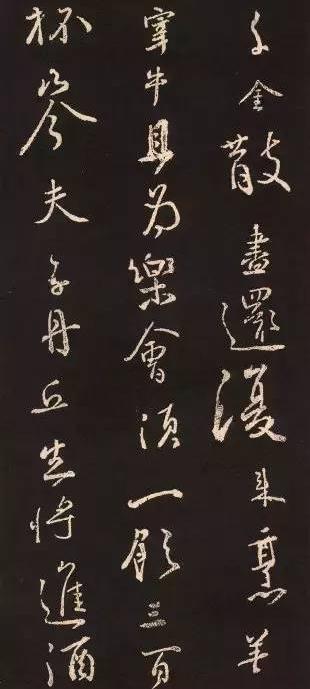 千金散盡還復來烹羊
宰牛且為樂會須一飲三百
杯岑夫子丹丘生將進酒